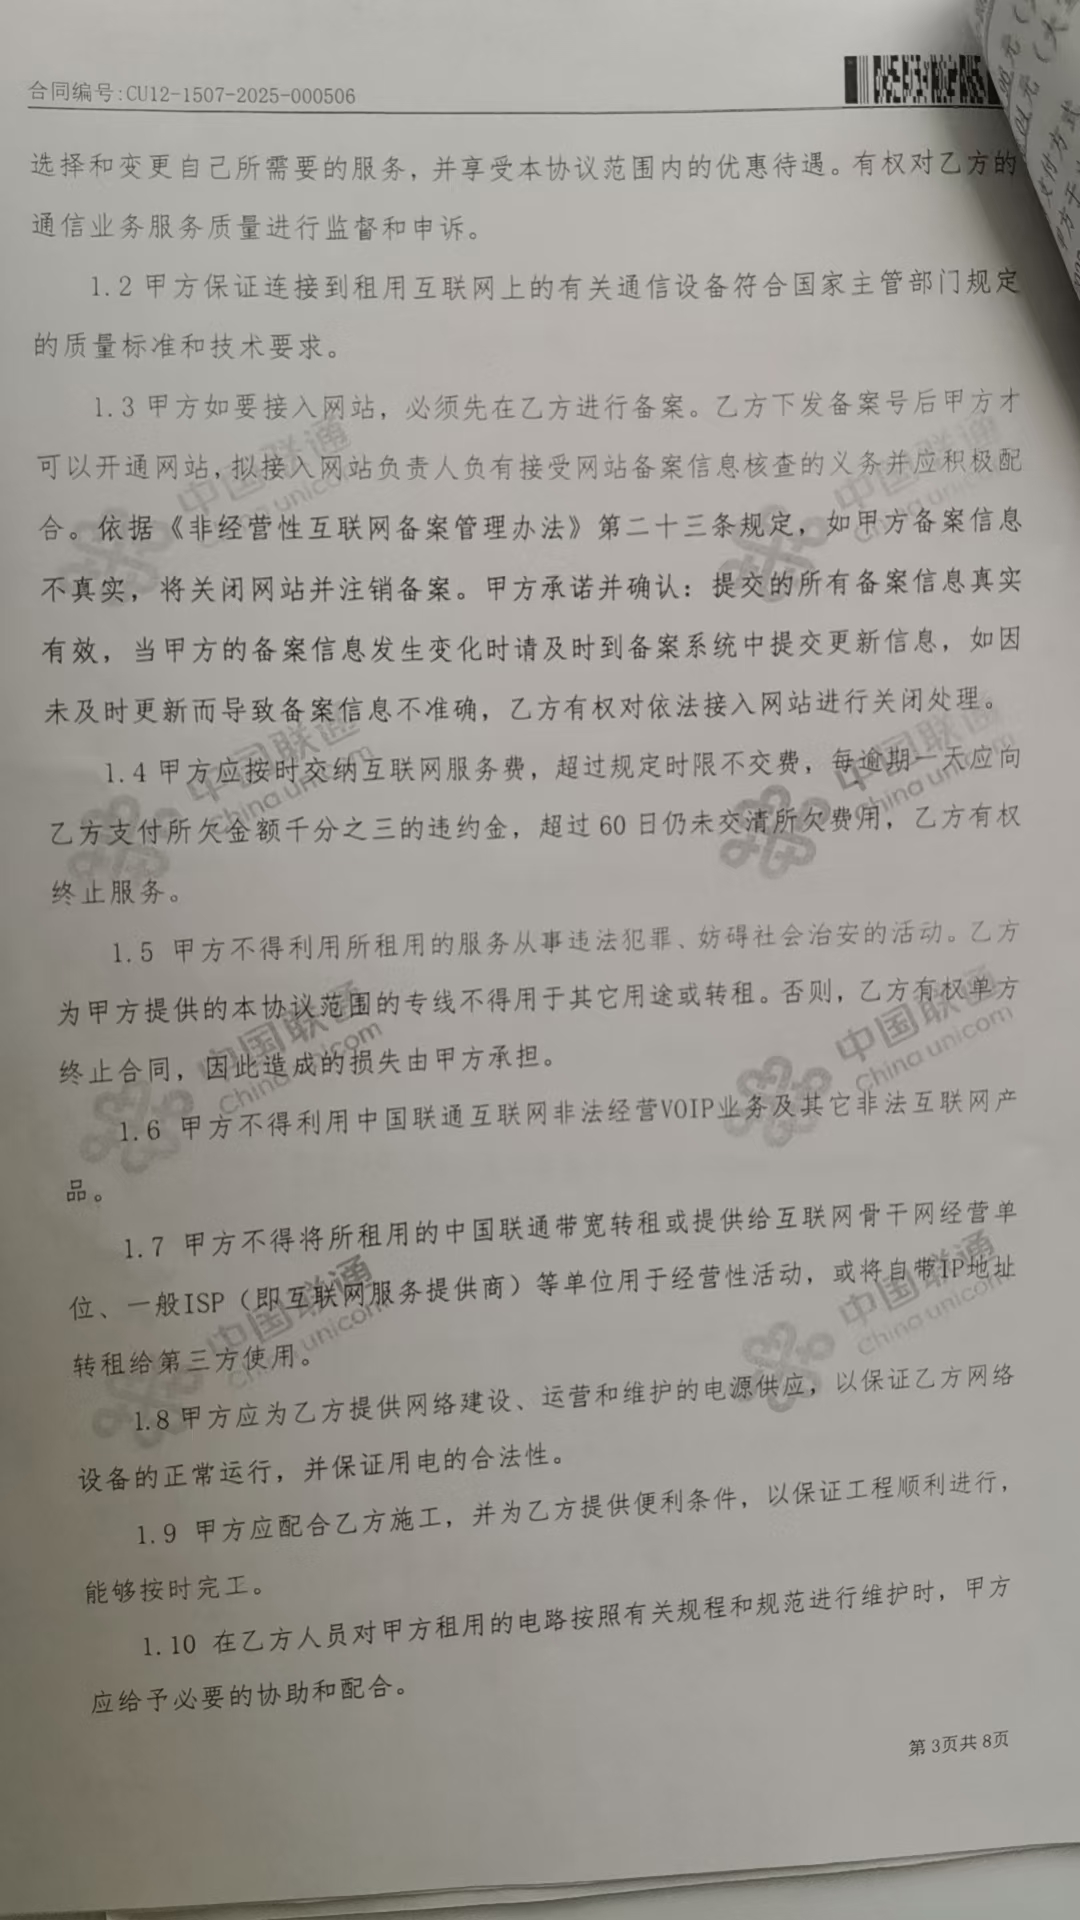 合同编号:CU12-1507-2025-000506
选择和变更自己所需要的服务，并享受本协议范围内的优惠待遇。有权对乙方的
通信业务服务质量进行监督和申诉。
1.2 甲方保证连接到租用互联网上的有关通信设备符合国家主管部门规定
的质量标准和技术要求。
1.3 甲方如要接入网站，必须先在乙方进行备案。乙方下发备案号后甲方才
可以开通网站，拟接入网站负责人负有接受网站备案信息核查的义务并应积极配
合。依据《非经营性互联网备案管理办法》第二十三条规定，如甲方备案信息
不真实，将关闭网站并注销备案。甲方承诺并确认：提交的所有备案信息真实
有效，当甲方的备案信息发生变化时请及时到备案系统中提交更新信息，如因
未及时更新而导致备案信息不准确，乙方有权对依法接入网站进行关闭处理。
1.4 甲方应按时交纳互联网服务费，超过规定时限不交费，每逾期一天应向
乙方支付所欠金额千分之三的违约金，超过 60 日仍未交清所欠费用，乙方有权
终止服务。
1.5 甲方不得利用所租用的服务从事违法犯罪、妨碍社会治安的活动。乙方
为甲方提供的本协议范围的专线不得用于其它用途或转租。否则，乙方有权单方
终止合同，因此造成的损失由甲方承担。
1.6 甲方不得利用中国联通互联网非法经营VOIP业务及其它非法互联网产
品。
1.7 甲方不得将所租用的中国联通带宽转租或提供给互联网骨干网经营单
位、一般ISP（即互联网服务提供商）等单位用于经营性活动，或将自带IP地址
转租给第三方使用。
1.8 甲方应为乙方提供网络建设、运营和维护的电源供应，以保证乙方网络
设备的正常运行，并保证用电的合法性。
1.9 甲方应配合乙方施工，并为乙方提供便利条件，以保证工程顺利进行，
能够按时完工。
1.10 在乙方人员对甲方租用的电路按照有关规程和规范进行维护时，甲方
应给予必要的协助和配合。
第 3页共 8页
中国联通
China unicom
中国联通
China unicom
中国联通
China unicom
中国联通
China unicom
中国联通
China unicom
中国联通
China unicom
中国联通
China unicom
中国联通
China unicom